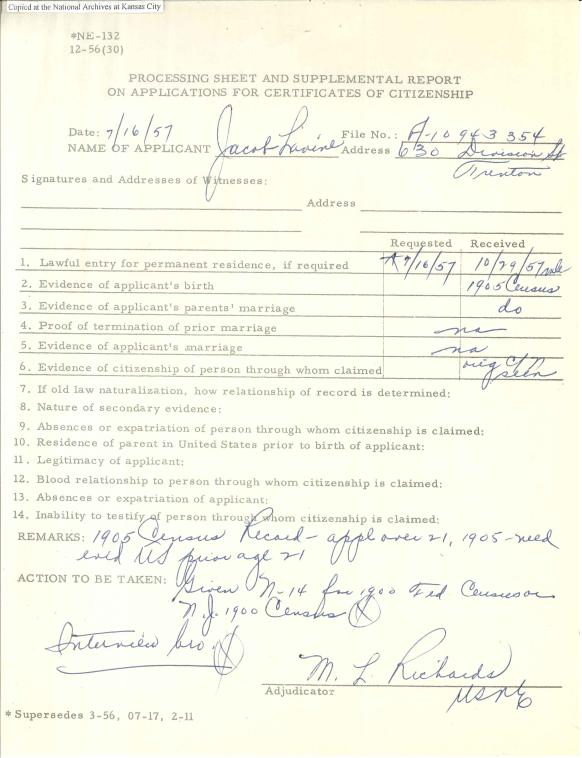 Copied at the National Archives at Kansas City
*NE-132
12-56(30)
PROCESSING SHEET AND SUPPLEMENTAL REPORT
ON APPLICATIONS FOR CERTIFICATES OF CITIZENSHIP
Date: 7/16/57 File No.: A-10 943 354
NAME OF APPLICANT Jacob Lavine Address 630 Division St
Trenton
Signatures and Addresses of Witnesses:
Address
Requested Received
1. Lawful entry for permanent residence, if required 7/16/57 10/29/57
2. Evidence of applicant's birth 1905 Census
3. Evidence of applicant's parents' marriage do
4. Proof of termination of prior marriage na
5. Evidence of applicant's marriage na
6. Evidence of citizenship of person through whom claimed orig C/N seen
7. If old law naturalization, how relationship of record is determined:
8. Nature of secondary evidence:
9. Absences or expatriation of person through whom citizenship is claimed:
10. Residence of parent in United States prior to birth of applicant:
11. Legitimacy of applicant:
12. Blood relationship to person through whom citizenship is claimed:
13. Absences or expatriation of applicant:
14. Inability to testify of person through whom citizenship is claimed:
REMARKS: 1905 Census Record - appl over 21, 1905 - need
evid US prior age 21
ACTION TO BE TAKEN: Given N-14 for 1900 Fed Census or
N.J. 1900 Census X
Interview bro. X
M. L. Richards
Adjudicator
* Supersedes 3-56, 07-17, 2-11